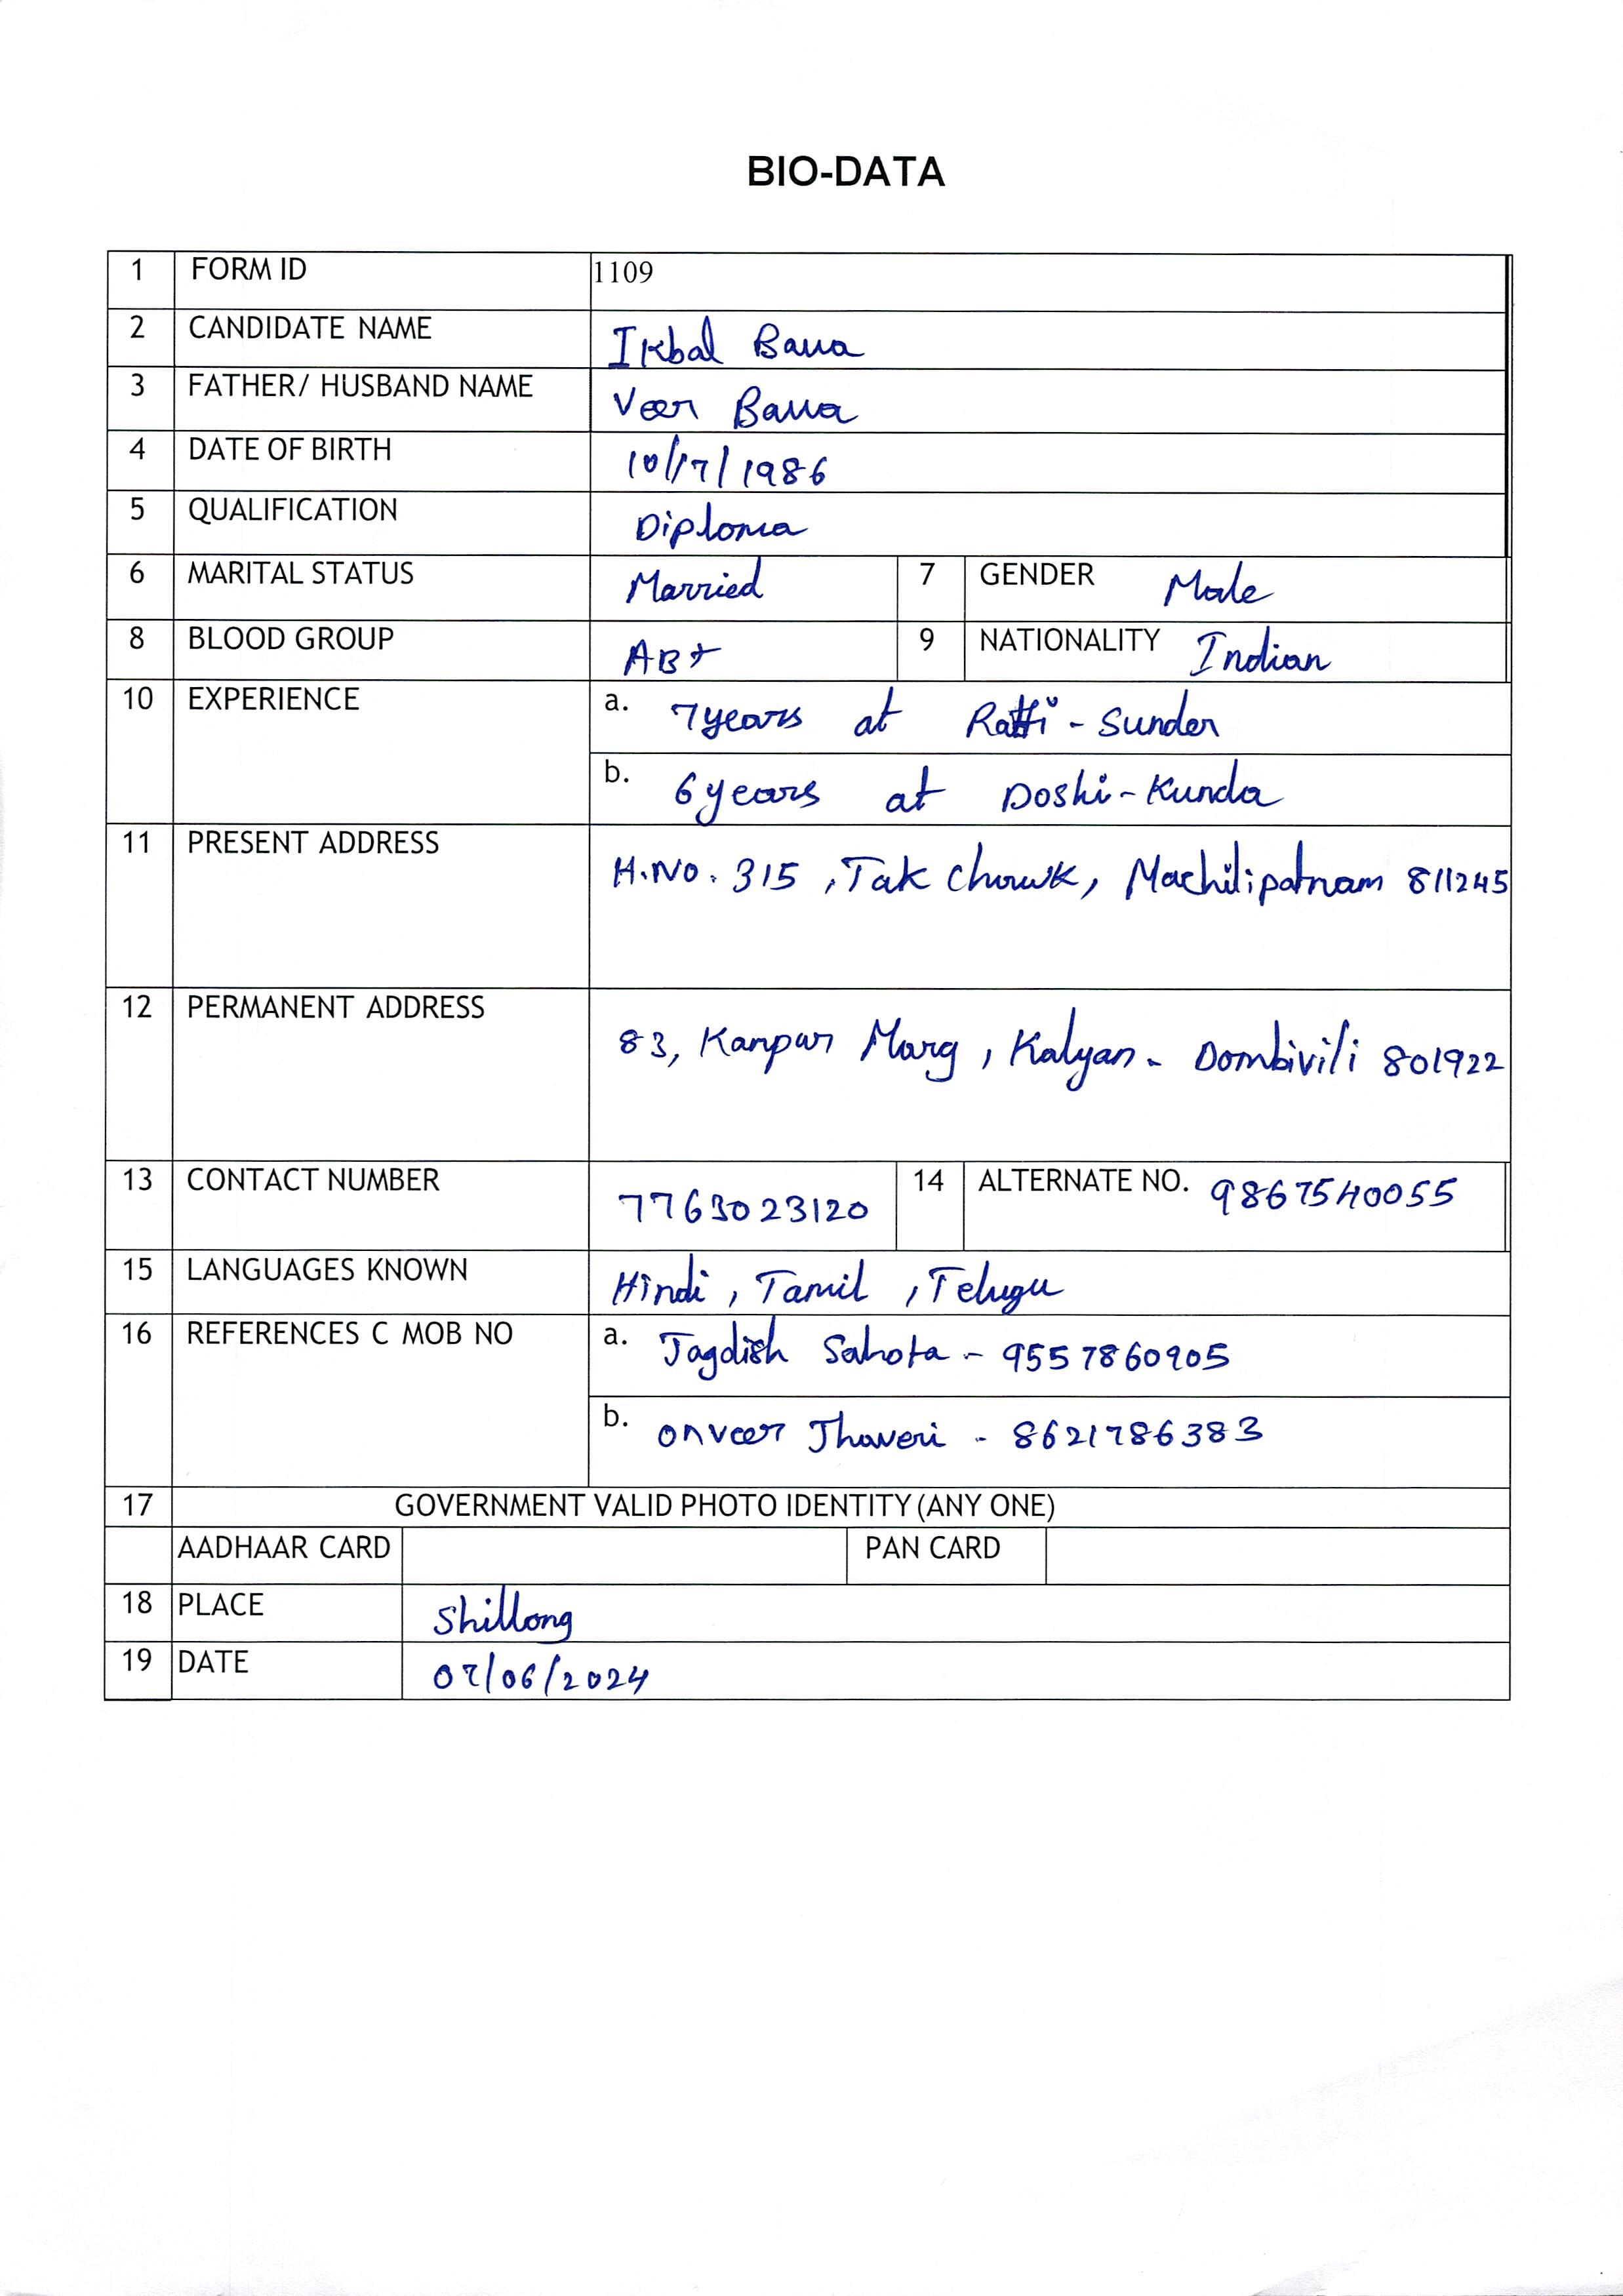 BIO-DATA
1 FORM ID 1109
2 CANDIDATE NAME Ikbal Bawa
3 FATHER/ HUSBAND NAME Veer Bawa
4 DATE OF BIRTH 10/17/1986
5 QUALIFICATION Diploma
6 MARITAL STATUS Married 7 GENDER Male
8 BLOOD GROUP AB+ 9 NATIONALITY Indian
10 EXPERIENCE a. 7years at Ratti-Sunder
b. 6years at Doshi-Kunda
11 PRESENT ADDRESS H.No. 315, Tak Chowk, Machilipatnam 811245
12 PERMANENT ADDRESS 83, Kanpur Marg, Kalyan-Dombivili 801922
13 CONTACT NUMBER 7763023120 14 ALTERNATE NO. 9867540055
15 LANGUAGES KNOWN Hindi, Tamil, Telugu
16 REFERENCES C MOB NO a. Jagdish Sahota - 9557860905
b. Onveer Jhaveri - 8621786383
17 GOVERNMENT VALID PHOTO IDENTITY (ANY ONE)
AADHAAR CARD PAN CARD
18 PLACE Shillong
19 DATE 07/06/2024